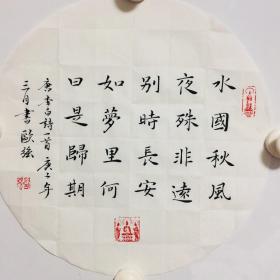 水國秋風
夜殊非遠
別時長安
如夢里何
日是歸期
唐李白詩一首庚子年
三月書歐強